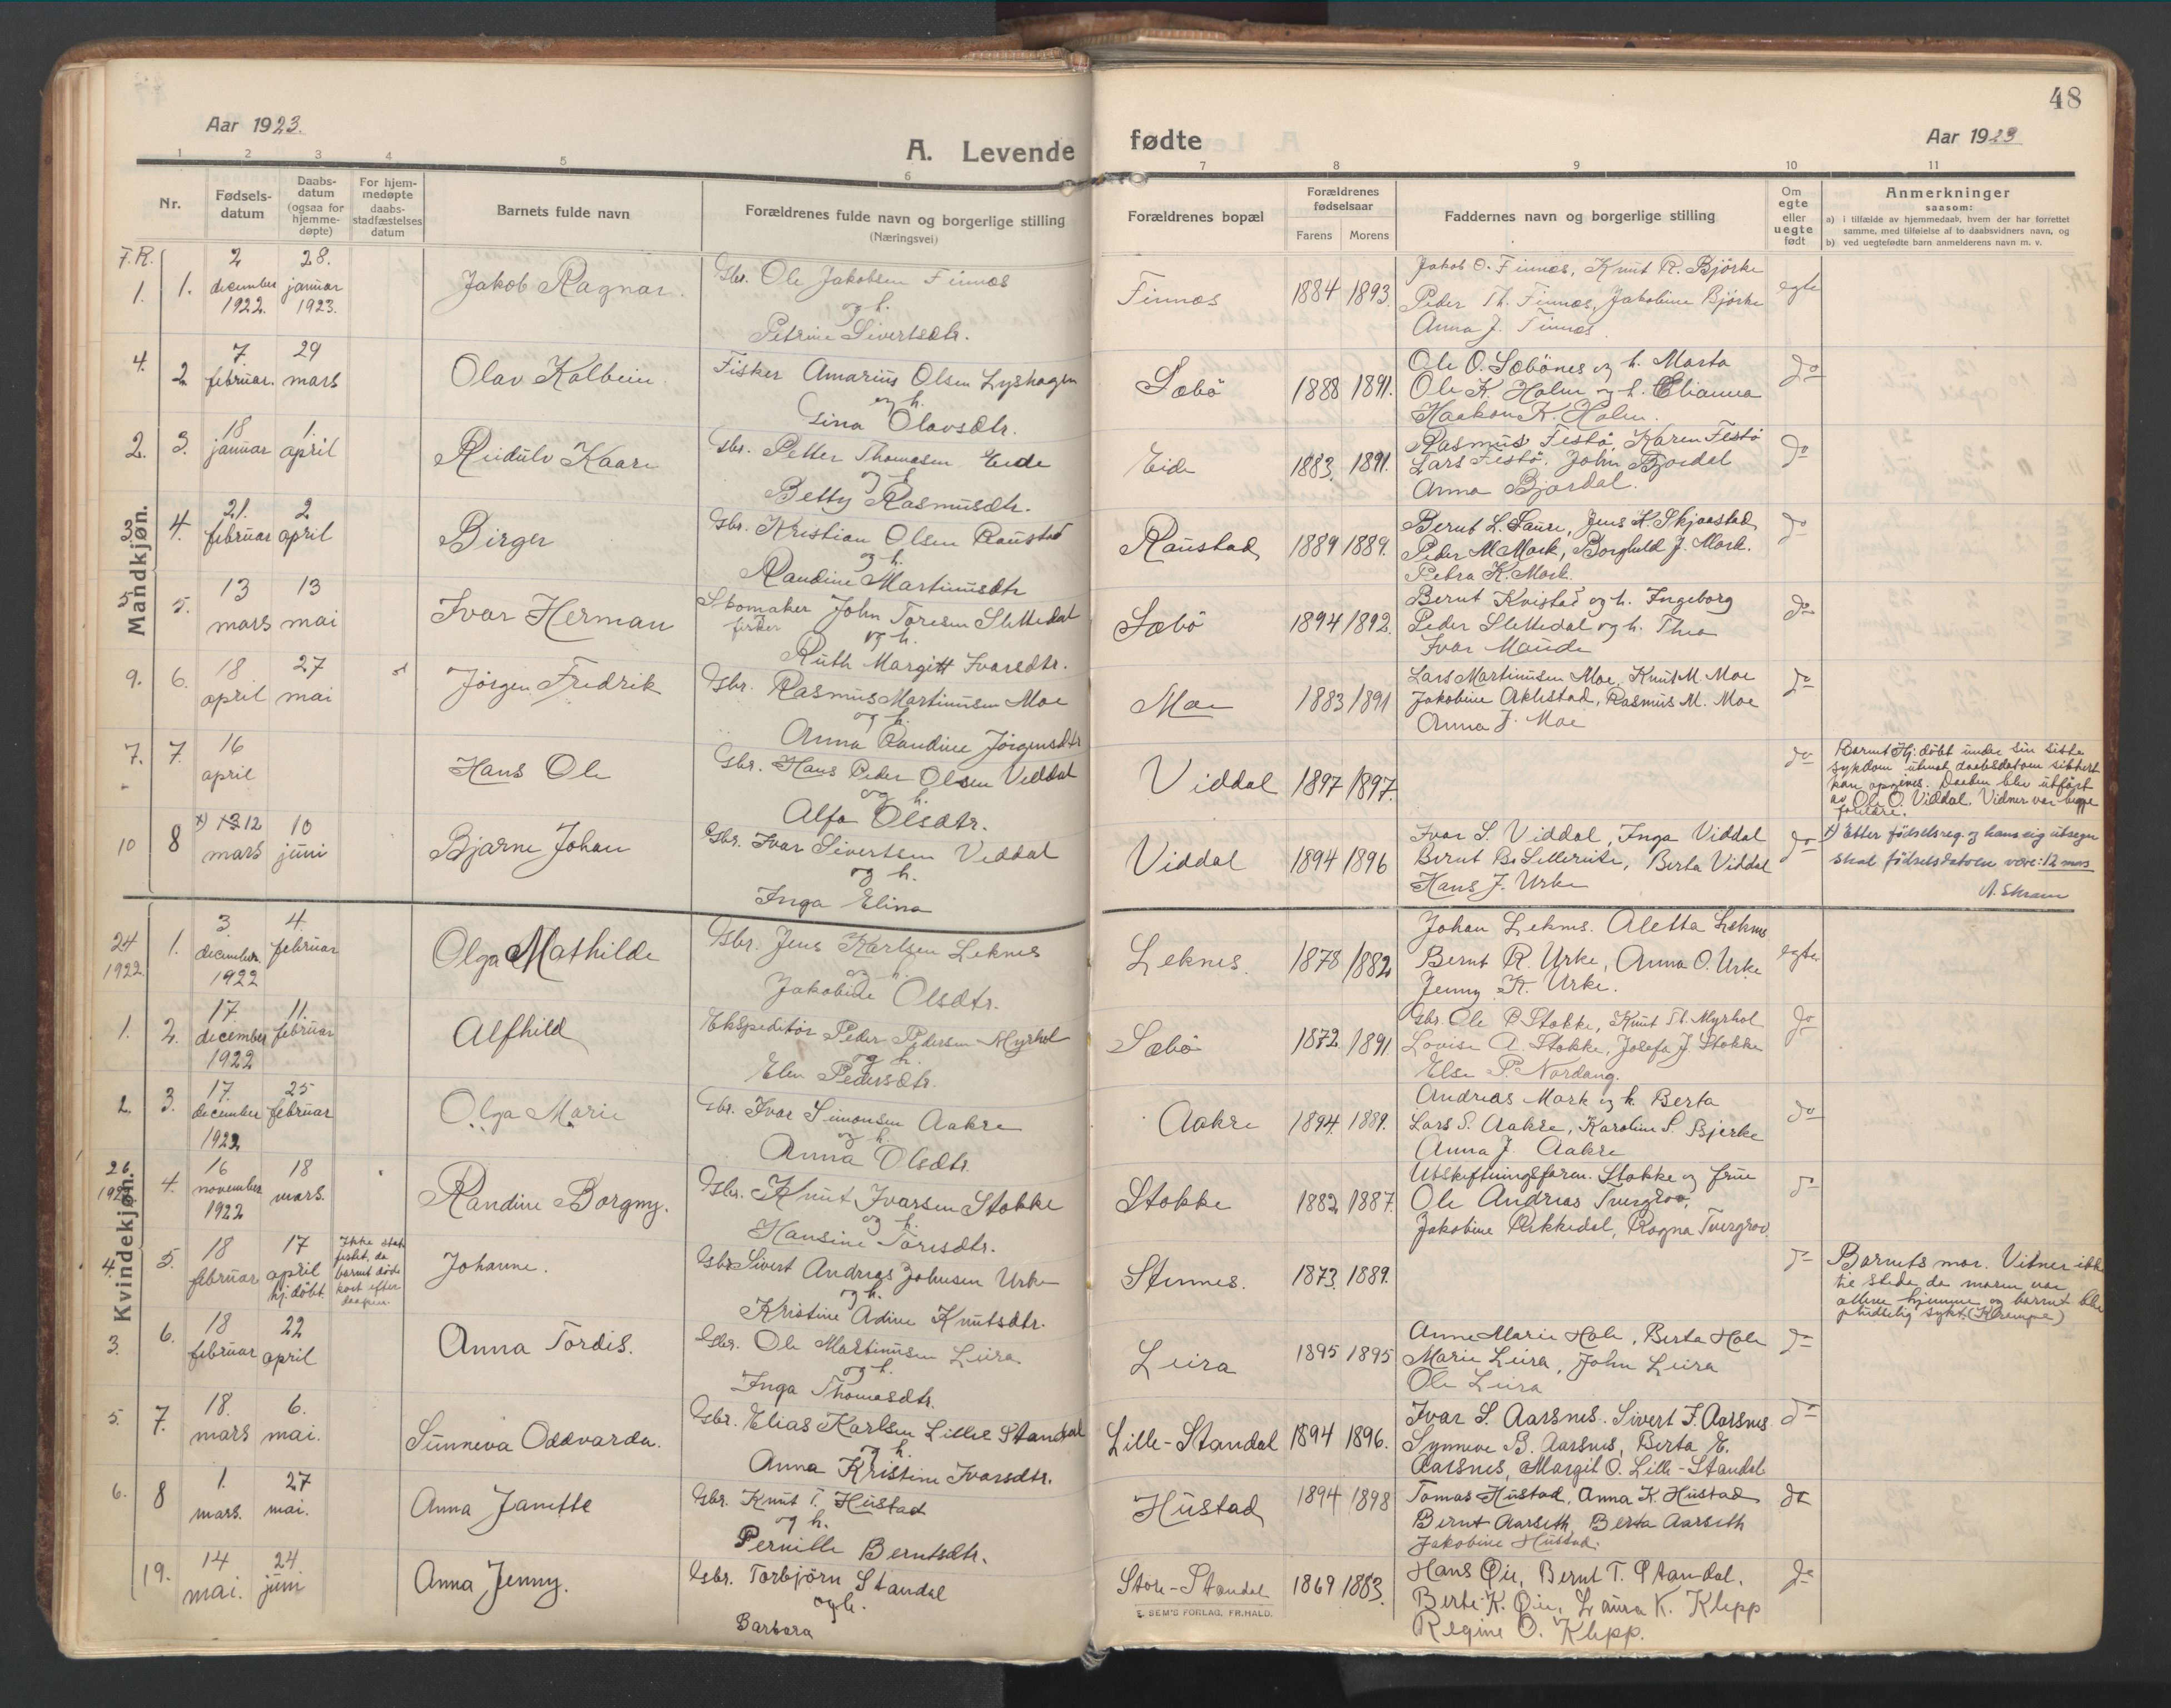 48
Aar 1923.
A. Levende
fødte
Aar 1923
1 2 3 4 5 6 7 8 9 10 11
Nr.
Fødsels-
datum
Daabs-
datum
(ogsaa for
hjemme-
døpte)
For hjem-
medøpte
daabs-
stadfæstelses
datum
Barnets fulde navn
Forældrenes fulde navn og borgerlige stilling
(Næringsvei)
Forældrenes bopæl
Forældrenes
fødselsaar
Farens Morens
Faddernes navn og borgerlige stilling
Om
egte
eller
uegte
født
Anmerkninger
saasom:
a) i tilfælde av hjemmedaab, hvem der har forrettet
samme, med tilføielse af to daabsvidners navn, og
b) ved uegtefødte barn anmelderens navn m. v.
Mandkjøn.
F.R.
1. 1. 2 december 1922. 28. januar 1923. Jakob Ragnar. Gbr. Ole Jakobsen Finnes
og h.
Petrine Sivertsdtr.
Finnes 1884 1893. Jakob O. Finnes, Knut R. Bjørke
Peder Th. Finnes, Jakobine Bjørke
Anna J. Finnes
egte
4. 2. 7. februar. 29 mars Olav Kolbein Fisker Amarius Olsen Lyshagen
og h.
Gina Olavsdtr.
Sæbö 1888 1891. Ole O. Sæbönes og h. Marta
Ole K. Holm og h. Elianna
Haakon K. Holm.
do
2. 3. 18 januar 1. april Reidulv Kaare Gbr. Petter Thomasen Eide
og h.
Betty Rasmusdtr.
Eide 1883. 1891. Rasmus Festö, Karen Festö
Lars Festö. John Bjordal
Anna Bjordal.
do
3 4. 21. februar 2 april Birger Gbr. Kristian Olsen Raustad
og h.
Randine Martinusdtr
Raustad 1889 1889. Bernt L. Saure, Jens K. Skjaastad
Peder M Mork, Borghild J. Mork.
Petra K. Mork.
do
5 5. 13 mars 13 mai Ivar Herman Skomaker John Toresen Slettedal
fisker
og h.
Ruth Margitt Ivarsdtr.
Sæbö 1894 1892. Bernt Kvistad og h. Ingeborg
Peder Slettedal og h. Thea
Ivar Maude
do
9. 6. 18 april 27 mai Jörgen Fredrik Gbr. Rasmus Martinusen Moe
og h.
Anna Randine Jörgensdtr
Moe 1883 1891 Lars Martinusen Moe, Knut M. Moe
Jakobine Aklestad, Rasmus M. Moe
Anna J. Moe
do
7. 7. 16 april Hans Ole Gbr. Hans Peder Olsen Viddal
og h.
Alfa Olsdtr.
Viddal 1897 1897. do
Barnet Hj. döbt under sin siste
sykdom uten daabsdatoen sikkert
kan opgives. Daaben blev utført
av Ole O. Viddal. Vidner var begge
foreldre.
10 8 x) 13 12 mars 10 juni Bjarne Johan Gbr. Ivar Sivertsen Viddal
og h.
Inga Elina
Viddal 1894 1896 Ivar S. Viddal, Inga Viddal
Bernt Bs Lillerute, Berta Viddal
Hans J. Urke
do
x) Etter födselsreg. og hans eig utsegn
skal födselsdatoen være: 12 mars
Kvindekjøn.
24 1922. 1. 3. december 1922 4. februar Olga Mathilde Gbr. Jens Karlsen Leknes
og h.
Jakobine Olsdtr.
Leknes. 1878 1882 Johan Leknes. Aletta Leknes
Bernt R. Urke, Anna O. Urke
Jenny K. Urke.
egte
1. 2. 17. december 1922 11. februar Alfhild Ekspeditör Peder Pedersen Myrhol
og h.
Elen Pedersdtr.
Sæbö 1872 1891 Gbr. Ole P. Stokke, Knut Th. Myrhol
Lovise A. Stokke, Josefa J. Stokke
Else P. Nordang.
do
2. 3. 17. december 1922 25 februar Olga Marie Gbr. Ivar Simonsen Aakre
og h.
Anna Olsdtr.
Aakre 1894. 1889. Andreas Mork og h. Berta
Lars S. Aakre, Karoline S. Bjerke
Anna J. Aakre
do
26 4. 16 november 1922 18 mars. Randine Borgny. Gbr. Knut Ivarsen Stokke
og h.
Hansine Toresdtr.
Stokke 1882 1887. Utskiftningsform. Stokke og frue
Ole Andreas Tvergrov,
Jakobine Rekkedal, Ragna Tvergrov
do
4. 5. 18 februar 17 april hj. döbt. Ikke stad
festet, da
barnet döde
kort efter
daapen
Johanne. Gbr Sivert Andreas Johnsen Urke
og h.
Kristine Adine Knutsdtr.
Stennes. 1873. 1889. do
Barnets mor. Vitner ikke
til stede da moren var
allene hjemme og barnet blev
pludselig sykt.
3. 6. 18 februar 22 april Anna Tordis. Gbr. Ole Martinusen Leira
og h.
Inga Thomasdtr.
Leira 1895 1895 Anne Marie Hole, Berta Hole
Marie Leira, John Leira
Ole Leira
do
5. 7. 18. mars 6. mai. Sunneva Oddvarda. Gbr. Elias Karlsen Lille Standal
og h.
Anna Kristine Ivarsdtr.
Lille-Standal 1894 1896. Ivar S. Aarsnes. Sivert I. Aarsnes
Synneve B. Aarsnes, Berta E.
Aarsnes, Margit O. Lille-Standal
do
6. 8 1. mars. 27 mai. Anna Janette Gbr. Knut T. Hustad
og h.
Pernille Berntsdtr.
Hustad 1894 1898 Tomas Hustad, Anna K. Hustad
Bernt Aarseth, Berta Aarseth
Jakobine Hustad.
do
19. 14 mai. 24. juni Anna Jenny. Gbr. Torbjörn Standal
og h.
Barbara
Store-Standal 1869 1883. Hans Øie, Bernt T. Standal.
Berte K. Øie, Laura K. Klepp
Regine O. Klepp.
do
E. SEM'S FORLAG, FR.HALD.